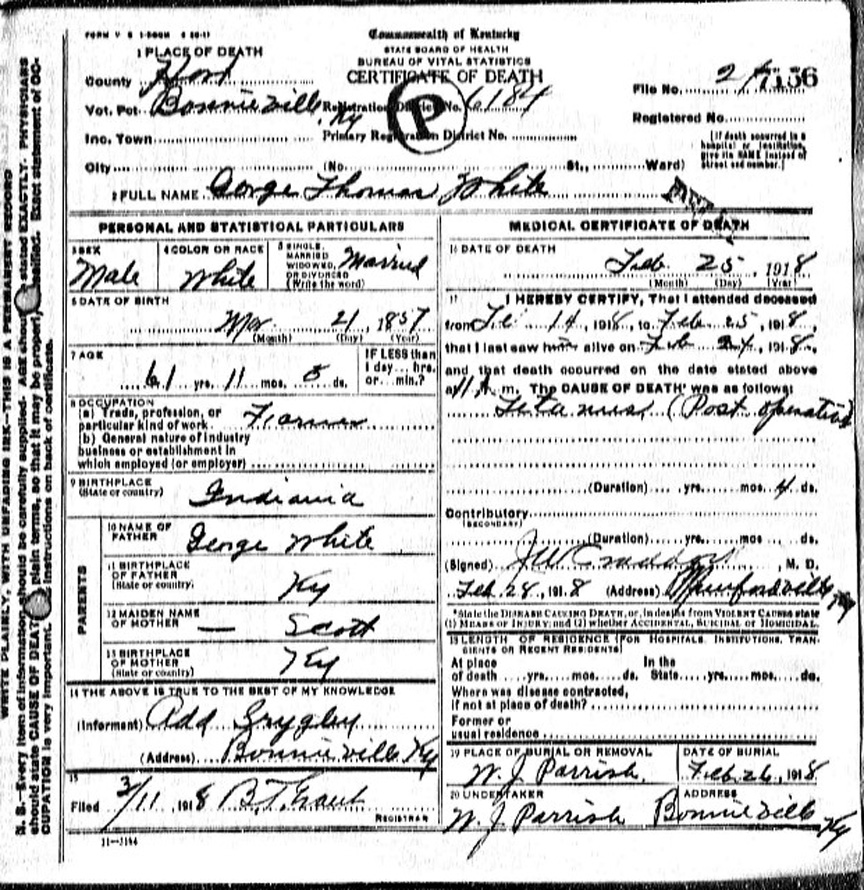 FORM V S 1-
Commonwealth of Kentucky
STATE BOARD OF HEALTH
BUREAU OF VITAL STATISTICS
CERTIFICATE OF DEATH
1 PLACE OF DEATH
County Hart
Vot. Pct. Bonnieville, Ky Registration District No. 6184
Inc. Town Primary Registration District No.
City (No. St., Ward)
File No. 7156
Registered No.
[If death occurred in a hospital or institution, give its NAME instead of street and number.]
P
2 FULL NAME George Thomas White
PERSONAL AND STATISTICAL PARTICULARS
3 SEX Male
4 COLOR OR RACE White
5 SINGLE, MARRIED WIDOWED, OR DIVORCED (Write the word) Married
6 DATE OF BIRTH
Mar 21, 1857
(Month) (Day) (Year)
7 AGE
61 yrs. 11 mos. 5 ds.
IF LESS than 1 day... hrs. or... min.?
8 OCCUPATION
(a) Trade, profession, or particular kind of work. Farmer
(b) General nature of industry
business or establishment in
which employed (or employer)
9 BIRTHPLACE
(State or country) Indiania
PARENTS
10 NAME OF FATHER George White
11 BIRTHPLACE OF FATHER (State or country) Ky
12 MAIDEN NAME OF MOTHER — Scott
13 BIRTHPLACE OF MOTHER (State or country) Ky
14 THE ABOVE IS TRUE TO THE BEST OF MY KNOWLEDGE
(Informant) Add Grygley
(Address) Bonnieville Ky
15
Filed 3/11 1918
REGISTRAR
11—3184
MEDICAL CERTIFICATE OF DEATH
16 DATE OF DEATH
Feb 25, 1918
(Month) (Day) (Year)
17 I HEREBY CERTIFY, That I attended deceased
from Fe 14, 1918, to Feb 25, 1918,
that I last saw him alive on Feb 24, 1918,
and that death occurred on the date stated above
at 11 A m. The CAUSE OF DEATH* was as follows:
Tetanus (Post operative
(Duration) yrs. mos 4 ds.
Contributory
(SECONDARY)
(Duration) yrs. mos ds.
(Signed) J W Craddock, M. D.
Feb 28, 1918 (Address) Munfordville Ky
*State the DISEASE CAUSING DEATH, or, in deaths from VIOLENT CAUSES state
(1) MEANS OF INJURY; and (2) whether ACCIDENTAL, SUICIDAL or HOMICIDAL.
18 LENGTH OF RESIDENCE (FOR HOSPITALS, INSTITUTIONS, TRANSIENTS OR RECENT RESIDENTS)
At place of death yrs. mos. ds. In the State yrs. mos. ds.
Where was disease contracted,
if not at place of death?
Former or
usual residence
19 PLACE OF BURIAL OR REMOVAL
W. J. Parrish.
DATE OF BURIAL
Feb 26, 1918
20 UNDERTAKER
W. J. Parrish
ADDRESS
Bonnieville Ky
WRITE PLAINLY, WITH UNFADING INK—THIS IS A PERMANENT RECORD
N. B.—Every item of information should be carefully supplied. AGE should stated EXACTLY. PHYSICIANS
should state CAUSE OF DEATH plain terms, so that it may be properly Exact statement of OC-
CUPATION is very important. instructions on back of certificate.